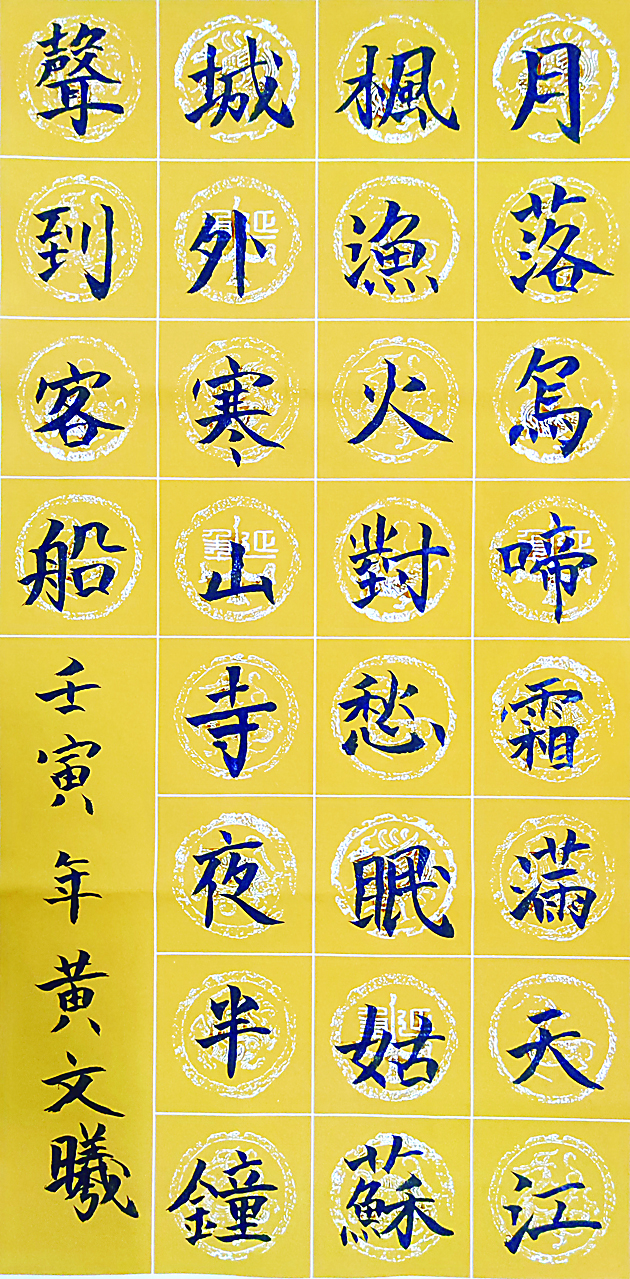 月落烏啼霜滿天江
楓漁火對愁眠姑蘇
城外寒山寺夜半鐘
聲到客船
壬寅年黃文曦